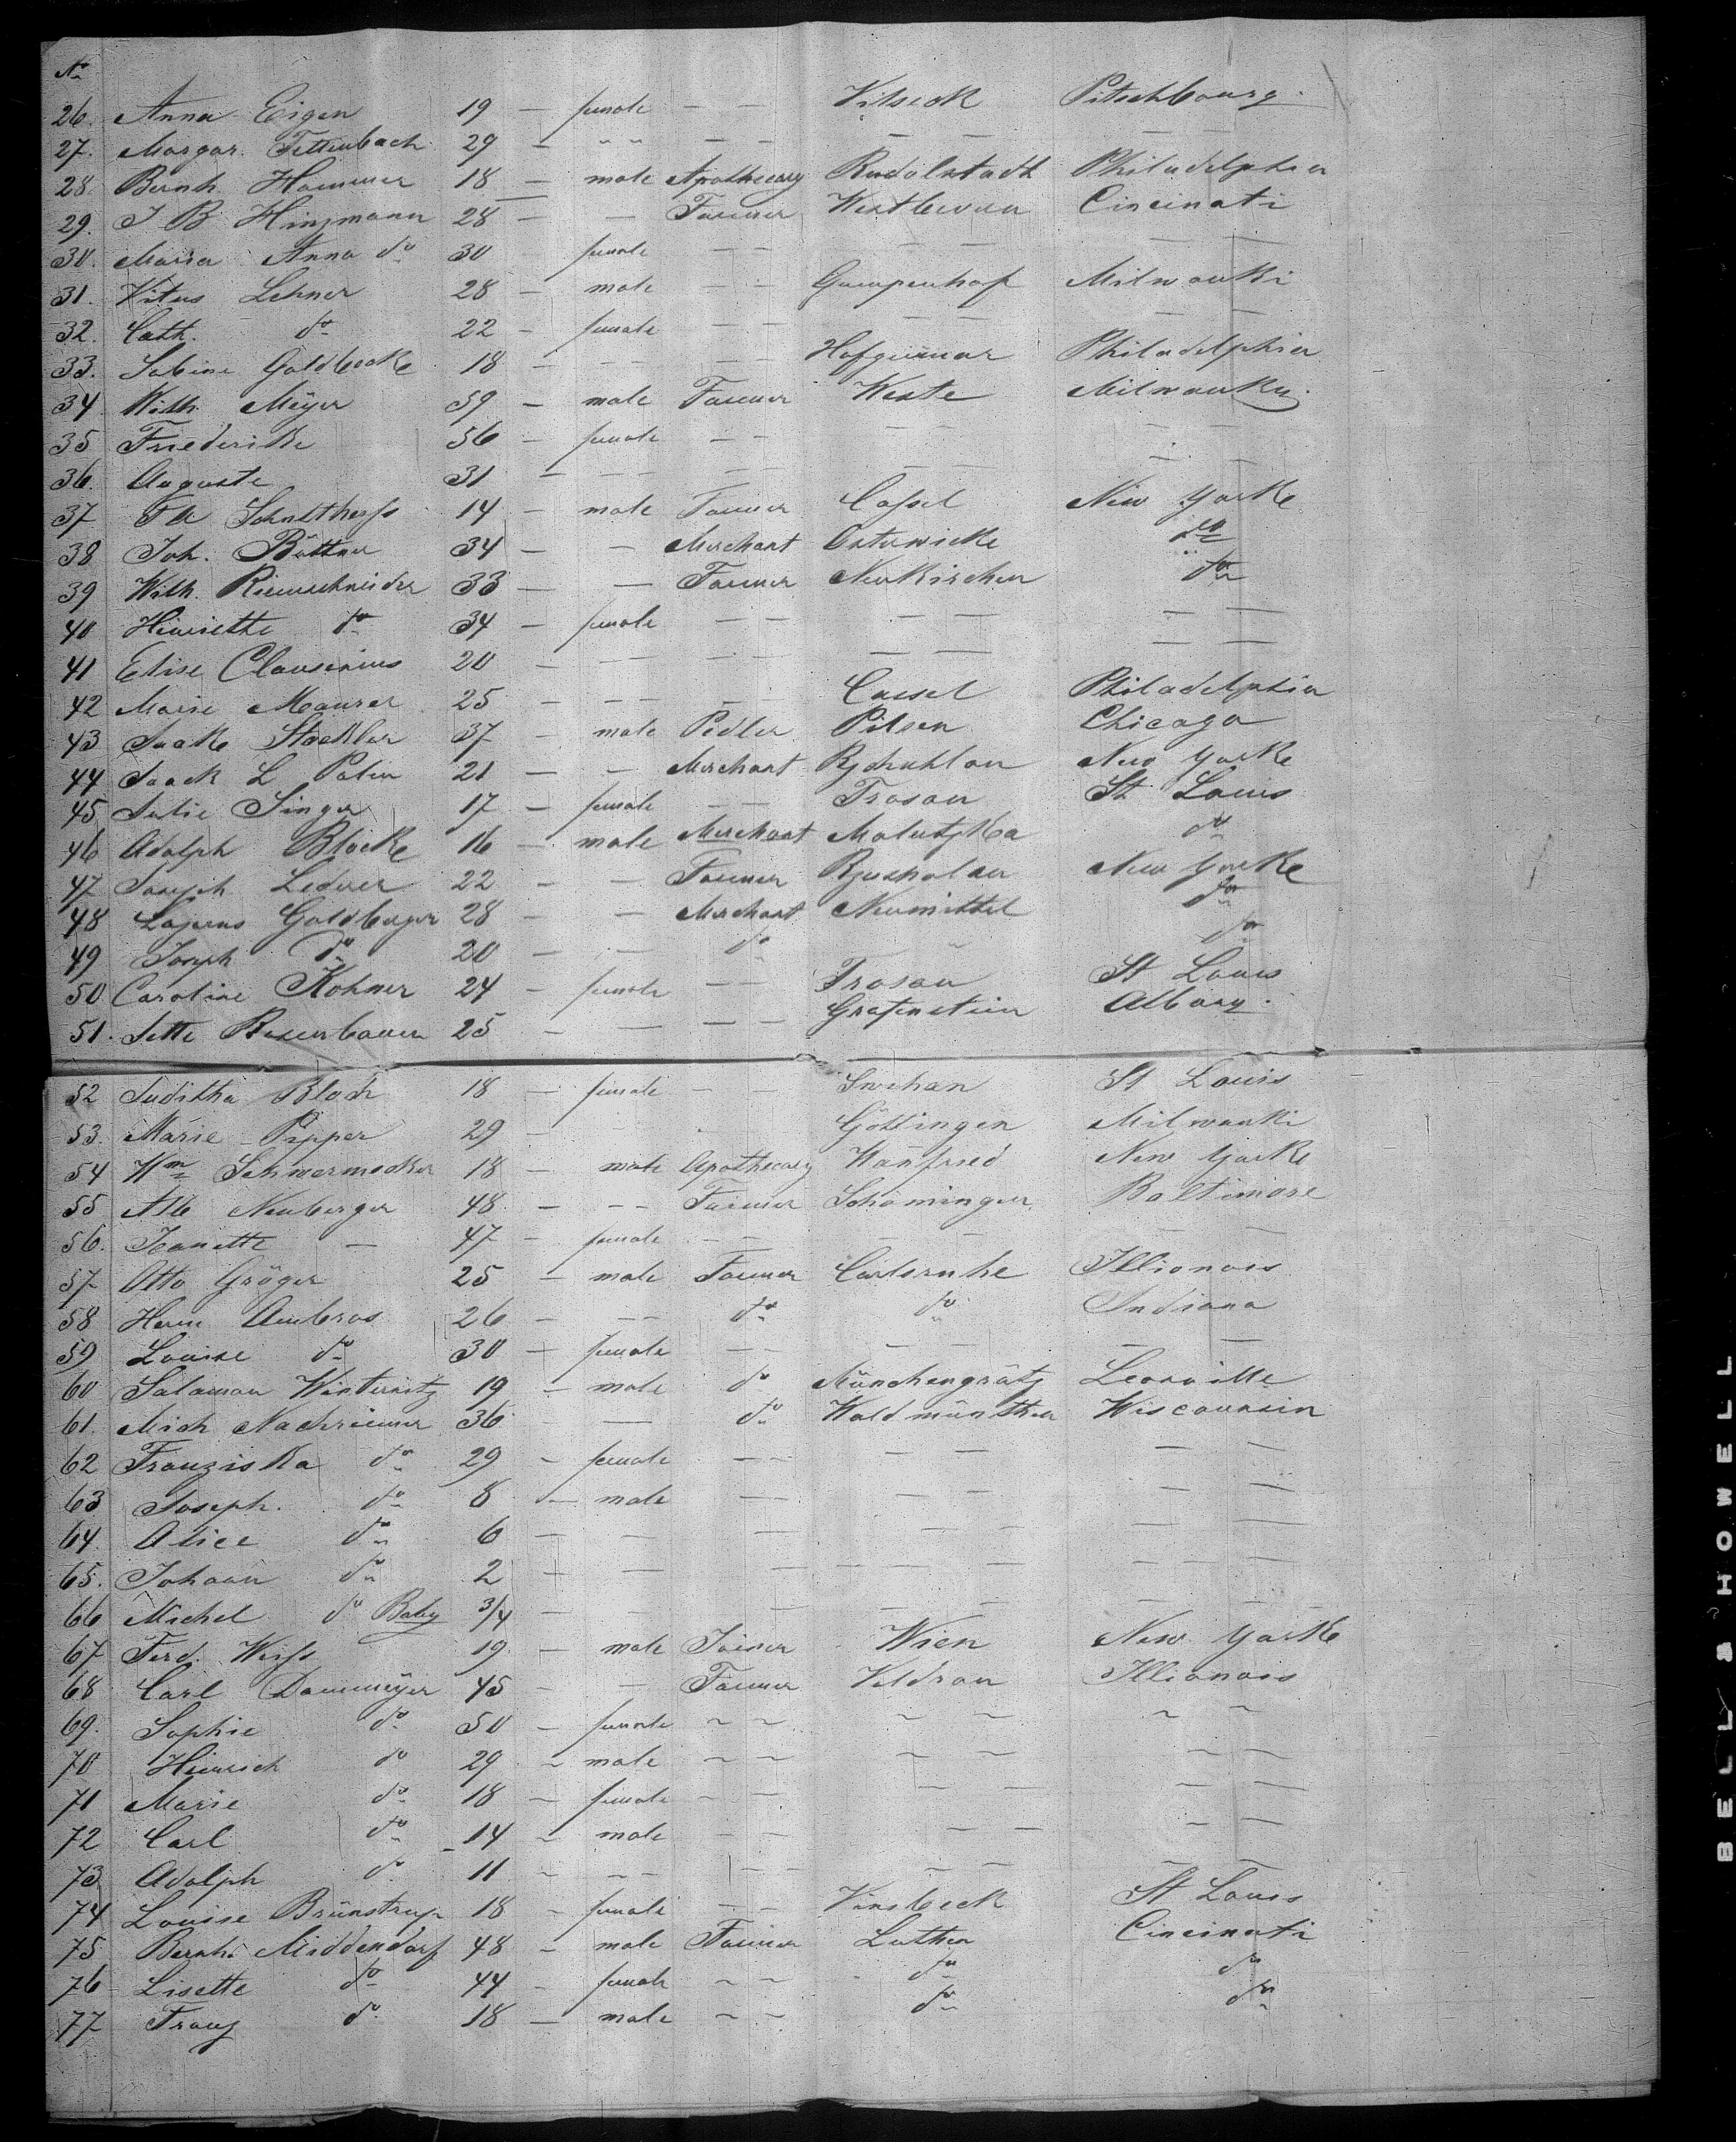 No
26. Anna Eigen 19 — female — — Vilseck Pitschbourg.
27. Margar. Tettenbach 29 — " " — — — — — —
28. Bernh. Hammer 18 — male Apothecary Rudolstadt Philadelphia
29. J B Hinzmann 28 — — Farmer Westbevern Cincinati
30. Maria Anna do 30 female — — — — — —
31. Vitus Lehner 28 — male — — Gumpenhof Milwauki
32. Cath. do 22 — female — — — — — —
33. Sabine Goldbecke 18 — — — — — Hofgeismar Philadelphia
34 Wilh. Meÿer 59 — male Farmer Weste Milwauky.
35 Friederike 56 — female — — — — — —
36. Auguste 31 — — — — — — — —
37 Schultheiss 14 — male Farmer Cassel New Yorke
38 Joh. Büttner 34 — — Merchant Osterwicke do
39 Wilh. Riemschneider 33 — — Farmer Neukirchen do
40 Henriette do 34 — female — — — — — —
41 Elise Clausenius 20 — — — — — — — — —
42 Marie Maurer 25 — — — — — Cassel Philadelphia
43 Isaak Stackler 37 — male Pedler Pilsen Chicago
44 Isaack L 21 — — Merchant New Yorke
45 Julie Singer 17 — female — — Trosau St Louis
46 Adolph Blocke 16 — male Merchant St Louis do
47 Joseph Lederer 22 — — Farmer New Yorke
48 Goldberger 28 — — Merchant Neumittel do
49 Joseph do 20 — — do — do
50 Caroline Kohner 24 — female — — Trosau St Louis
51. Jette 25 — — — — Grafenstein Albany.
52 Juditha Bloch 18 — female — — St Louis
53. Marie Pipper 29 — Göttingen Milwauki
54 Wm Schwarmecker 18 — male Apothecary Wanfried New Yorke
55 Alb Neuberger 48 — — — Farmer Schömingen Baltimore
56. Jeanette — 47 — female — — — — — —
57 Otto Gröger 25 — male Farmer Carlsruhe Illionois
58 Herm Ambros 26 — — — do do Indiana
59 Louise do 30 — female — — — — —
60 Salaman Winternitz 19 — male do Münchengrätz Leouville
61. Mich Nachreiner 36 — do Waldmünchen Wisconnsin
62 Franziska do 29 — female — — — — — —
63 Joseph. do 8 — male — — — — — —
64 Alice do 6 — — — — — — —
65. Johann do 2 — — — — — — —
66 Michel do Baby 3/4 — — — — — — —
67 Ferd. Weiss 19 — male Joiner Wien New Yorke
68 Carl Dammeÿer 45 — — Farmer Veldrom Illionois
69. Sophie do 50 — female ~ ~ ~ ~ ~ ~
70 Heinrich do 29 — male ~ ~ ~ ~ ~ ~
71 Marie do 18 — female — — — — — —
72 Carl do 14 — male — — — — — —
73 Adolph do 11 — — — — — — — — —
74 Louise Brünstrup 18 — female — — Vinsbeck St Louis
75 Bernh. Middendorf 48 — male Farmer Luthen Cincinati
76 Lisette do 44 — female ~ ~ do do
77 Franz do 18 — male ~ ~ do do
BELL & HOWELL